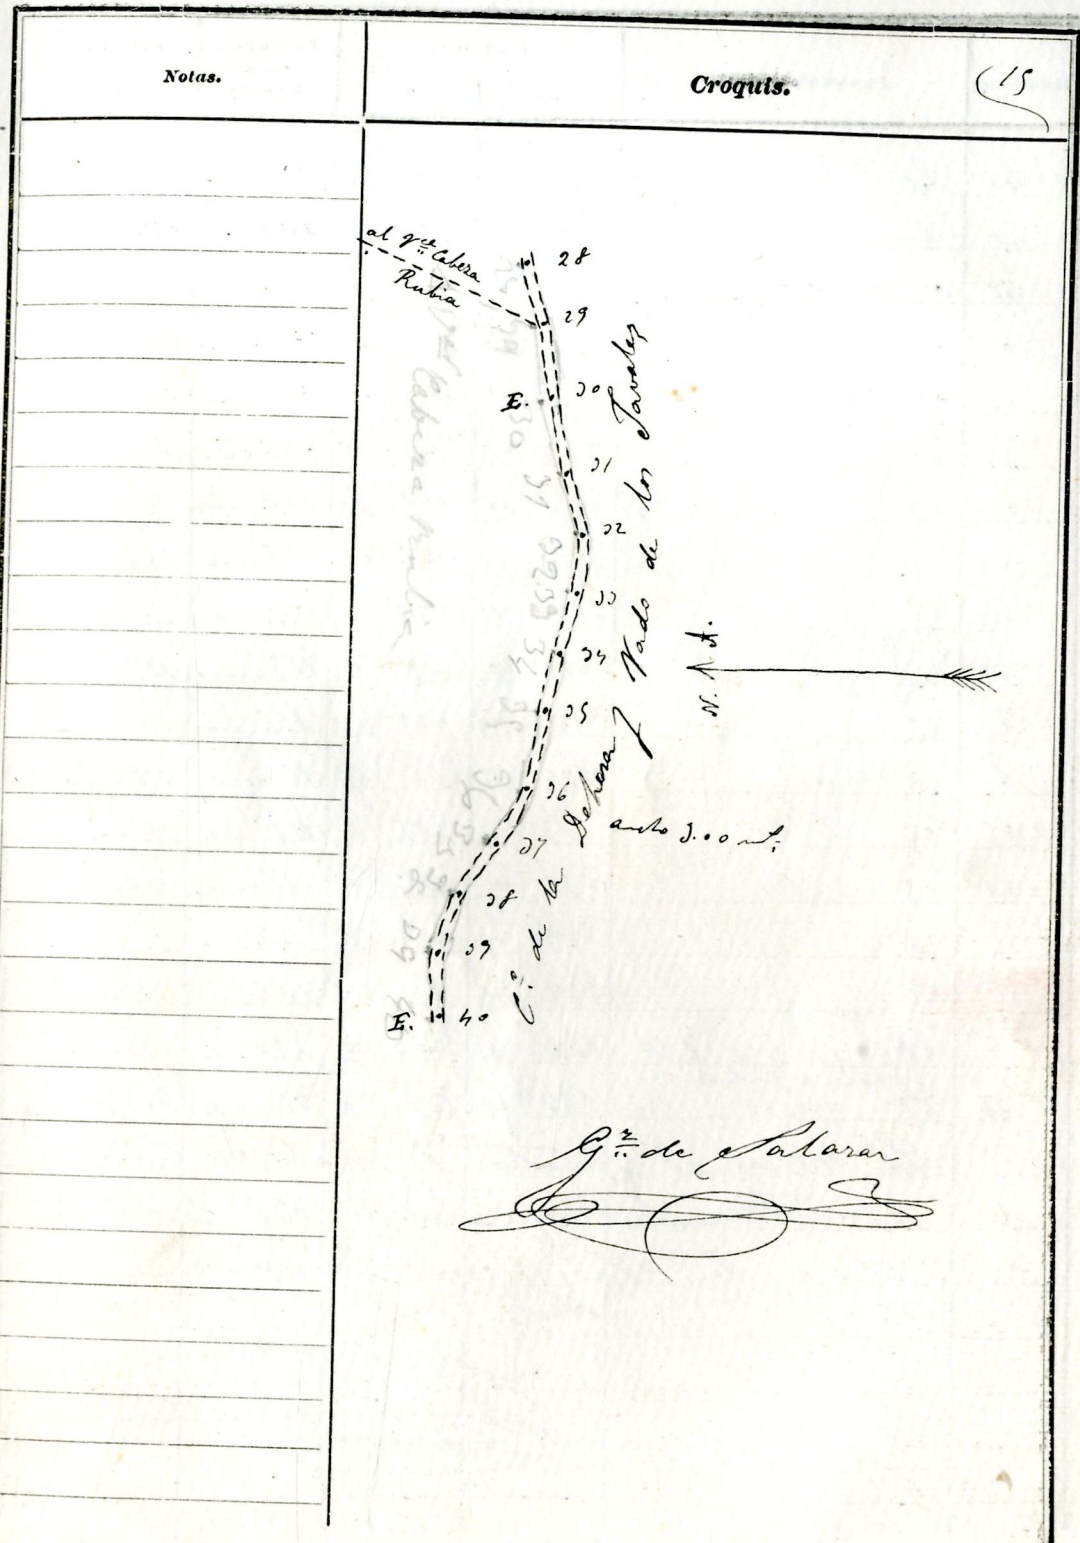 Notas.
Croquis.
15
al vce Cabeza
Rubia
28
29
E. 30
31
32
33
34
35
36
37
38
39
E. 40
C.º de la Dehesa y Vado de los
N. A.
ancho 3.00 mt.
G.z de Salazar